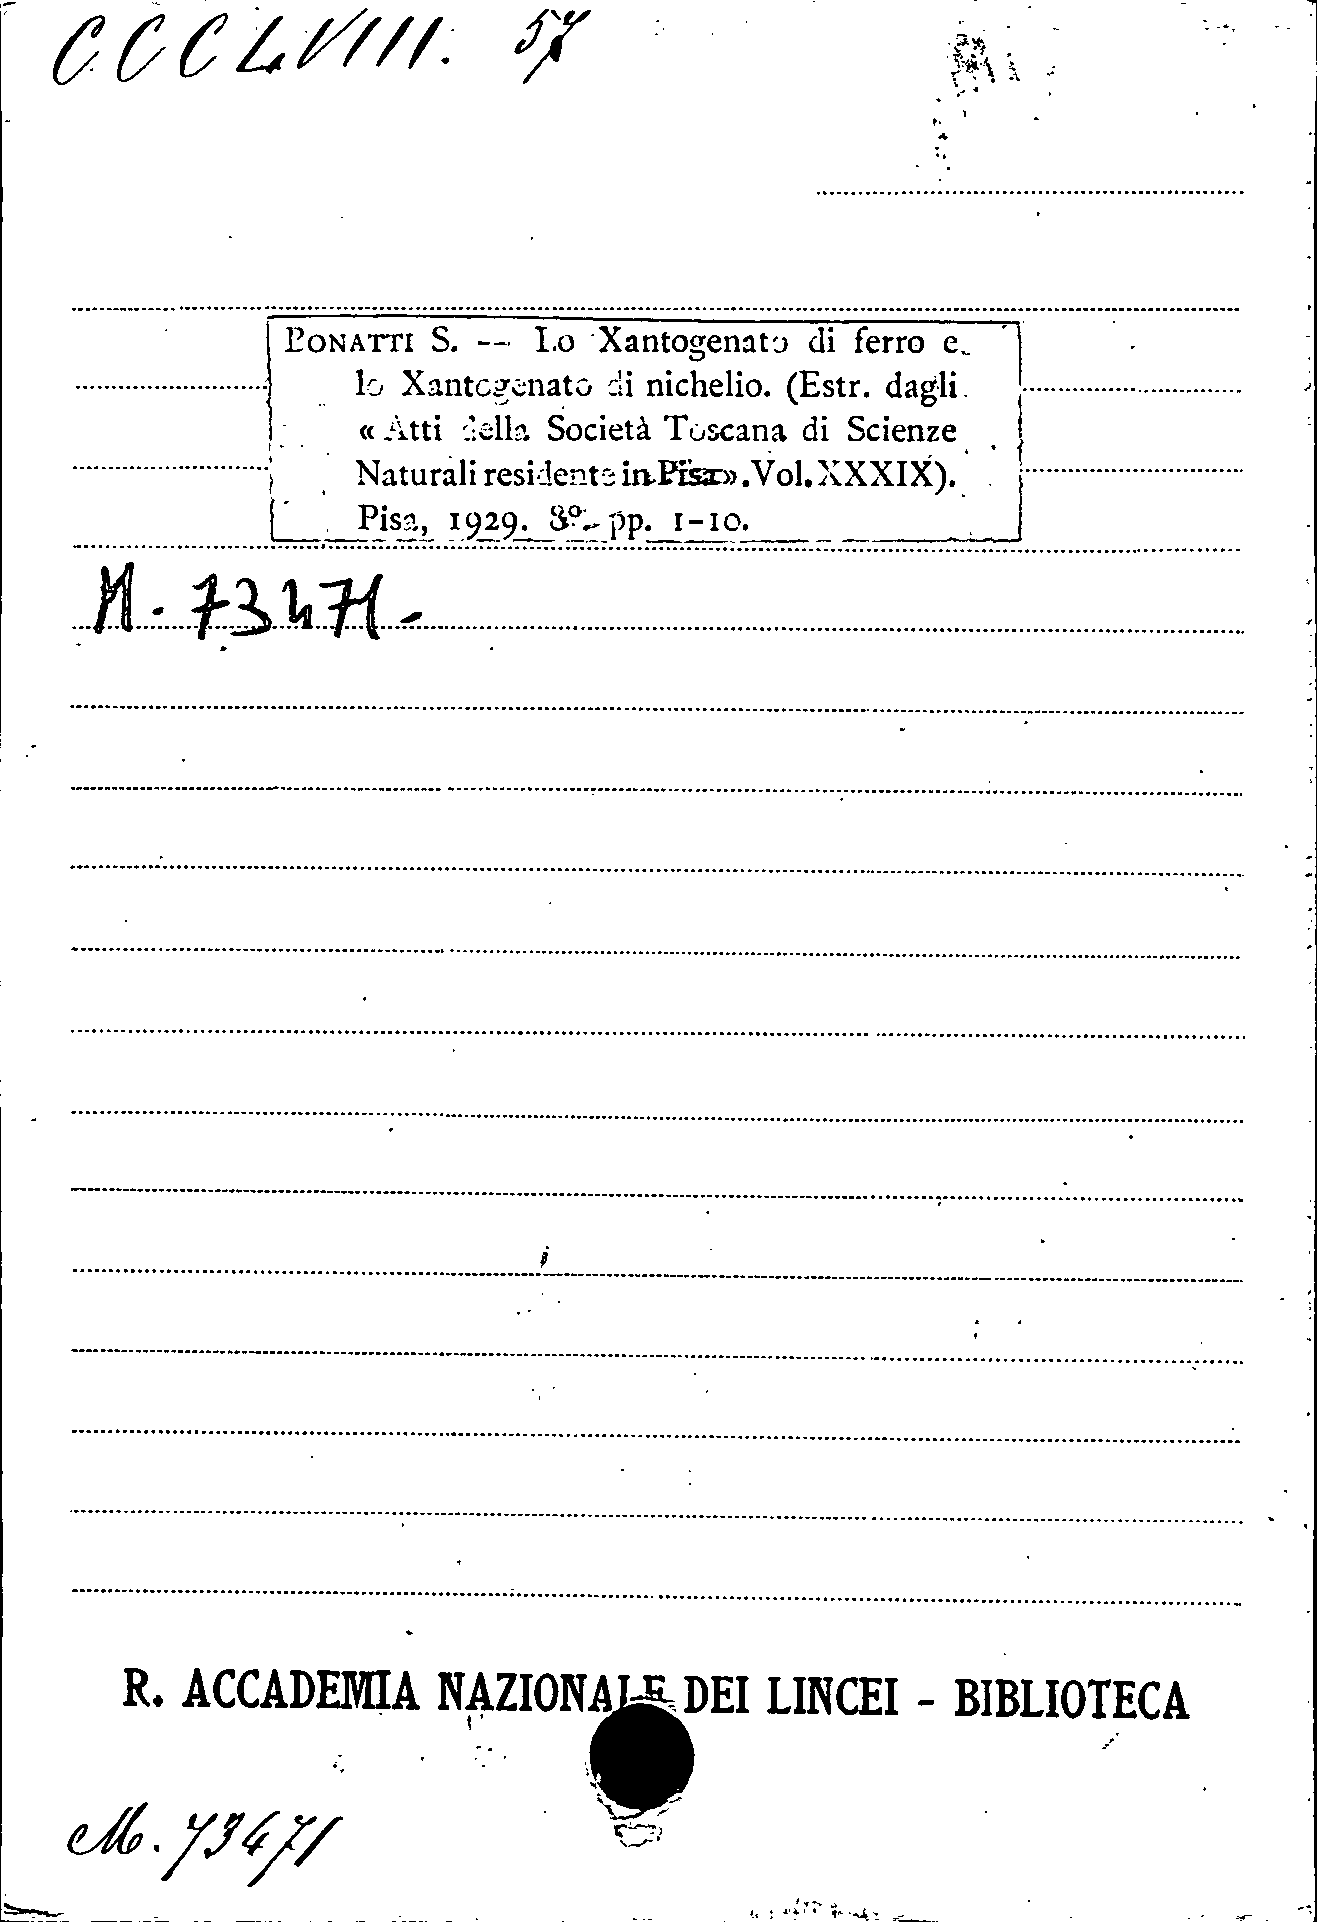 CCCLVIII. 57
BONATTI S. — Lo Xantogenato di ferro e
lo Xantogenato di nichelio. (Estr. dagli
« Atti della Società Toscana di Scienze
Naturali residente in Pisa». Vol. XXXIX).
Pisa, 1929. 8º- pp. 1-10.
M. 73471-
R. ACCADEMIA NAZIONALE DEI LINCEI - BIBLIOTECA
M. 73471